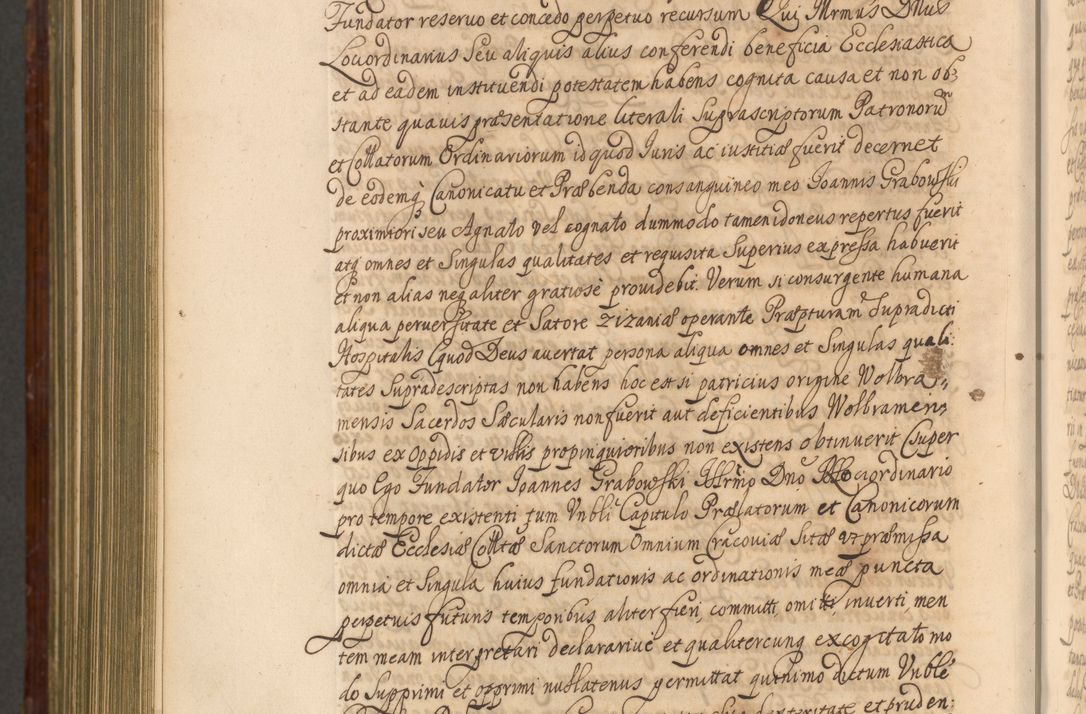 Fundator reseruo et concedo perpetuo recursum Qui Illrmus Dnus
Lociordinarius Seu aliquis alius conferendi beneficia Ecclesiastica
et ad eadem instituendi potestatem habens cognita causa et non ob:
stante quauis præsentatione literali Suprascriptorum Patronorum
et Collatorum Ordinariorum id quod Iuris ac iustitiæ fuerit decernet
de eodemq Canonicatu et Præbenda consanguineo meo Ioannis Grabowski
proximiori seu Agnato vel cognato dummodo tamen idoneus repertus fuerit
atq omnes et Singulas qualitates et requisita Superius expressa habuerit
et non alias neq aliter gratiose prouidebit. Verum si consurgente humana
aliqua peruersitate et Satore zizaniæ operante Præpturam Supradicti
Hospitalis (quod Deus auertat persona aliqua omnes et Singulas quali:
tates Supradescriptas non habens hoc est si patricius origine Wolbra:
mensis Sacerdos Sæcularis non fuerit aut deficientibus Wolbramen:
sibus ex Oppidis et villis propinquioribus non existens obtinuerit (super
quo Ego Fundator Ioannes Grabowski Illrmo Dno Lociordinario
pro tempore existenti tum Vnbli Capitulo Prælatorum et Canonicorum
dictæ Ecclesiæ Colltæ Sanctorum Omnium Cracouiæ Sitæ vt præmissa
omnia et Singula huius fundationis ac ordinationis meæ puncta
perpetuis futuris temporibus aliter fieri, committi, omitti, inuerti, men
tem meam interpretari declarariue et qualitercunq excogitato mo
do Supprimi et opprimi nullatenus permittat quinimo dictum Vnble
dexteritate et pruden: